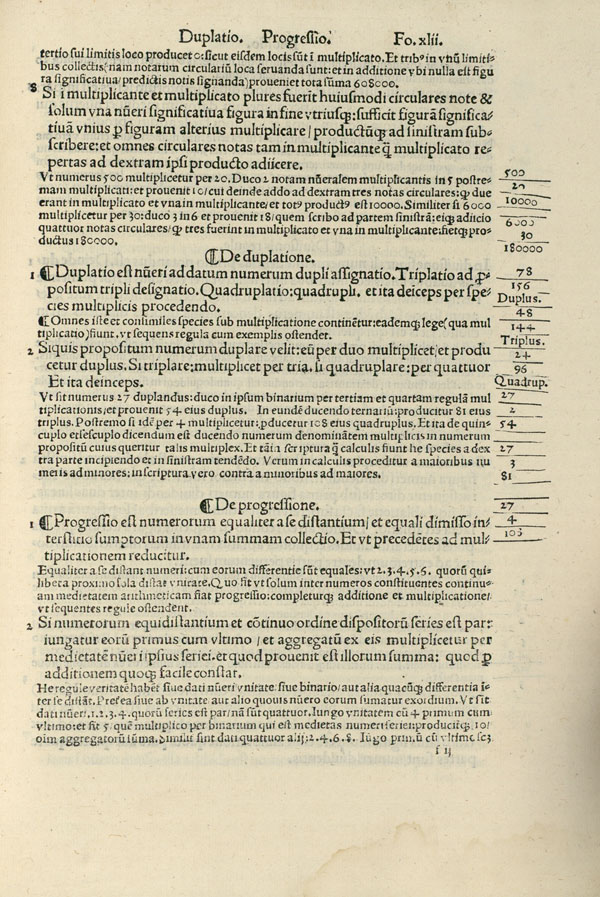 Duplatio. Progressio. Fo. xlii.
tertio sui limitis loco producet
bus collectis (nam notarum circularium loca seruanda sunt: et in additione vbi nulla est figu
ra significatiua/ predictis notis signanda) proueniet tota sūma 608000.
8 Si ī multiplicante et multiplicato plures fuerīt huiusmodi circulares note &
solum vna nūeri significatiua figura in fine vtriusqꝫ: sufficit figurā significa⸗
tiuā vnius ꝑ figuram alterius multiplicare/ productūqꝫ ad sinistram sub⸗
scribere: et omnes circulares notas tam in multiplicante ꝙ multiplicato re
pertas ad dextram ipsi producto adiicere.
Vt numerus 500 multiplicetur per 20. Duco 2 notam nūeralem multiplicantis in 5 postre⸗
mam multiplicati: et prouenit 10/ cui deinde addo ad dextram tres notas circulares: ꝙ due
erant in multiplicato et vna in multiplicante/ et totꝰ productꝰ est 10000. Similiter si 6000
multiplicetur per 30: duco 3 in 6 et prouenit 18/ quem scribo ad partem sinistrā: eiqꝫ adiicio
quattuor notas circulares/ ꝙ tres fuerint in multiplicato et vna in multiplicante: fietqꝫ pro⸗
ductus 180000.
500
20
10000
6000
30
180000
¶ De duplatione.
1 ¶ Duplatio est nūeri ad datum numerum dupli assignatio. Triplatio ad ꝓ⸗
positum tripli designatio. Quadruplatio: quadrupli. et ita deīceps per spe⸗
cies multiplicis procedendo.
¶ Omnes iste et consimiles species sub multiplicatione continētur: eademqꝫ lege (qua mul
tiplicatio) fiunt. vt sequens regula cum exemplis ostendet.
2 Siquis propositum numerum duplare velit: eū per duo multiplicet/ et produ
cetur duplus. Si triplare: multiplicet per tria. si quadruplare: per quattuor
Et ita deinceps.
Vt sit numerus 27 duplandus: duco in ipsum binarium per tertiam et quartam regulā mul
tiplicationis/ et prouenit 54 eius duplus. In eundē ducendo ternariū: producitur 81 eius
triplus. Postremo si idē per 4 multiplicetur: ꝓducetur 108 eius quadruplus. Et ita de quin⸗
cuplo et sescuplo dicendum est ducendo numerum denominātem multiplicis in numerum
propositū cuius queritur talis multiplex. Et tā in scriptura ꝙ calculis fiunt he species a dex
tra parte incipiendo et in sinistram tendēdo. Verum in calculis proceditur a maioribus nu
meris ad minores: in scriptura vero contra a minoribus ad maiores.
78
156
Duplus.
48
144
Triplus.
24
96
Quadrup.
27
2
54
27
3
81
27
4
108
¶ De progressione.
1 ¶ Progressio est numerorum equaliter a se distantium/ et equali dimisso in⸗
terstitio sumptorum in vnam summam collectio. Et vt precedētes ad mul⸗
tiplicationem reducitur.
Equaliter a se distant numeri: cum eorum differentie sūt equales: vt 2. 3. 4. 5. 6. quorū qui⸗
libet a proximo sola distat vnitate. Quo fit vt solum inter numeros constituentes continu⸗
am medietatem arithmeticam fiat progressio: completurqꝫ additione et multiplicatione/
vt sequentes regule ostendent.
2 Si numerorum equidistantium et cōtinuo ordine dispositorū series est par:
iungatur eorū primus cum vltimo/ et aggregatū ex eis multiplicetur per
medietatē nūei ipsius seriei. et quod prouenit est illorum summa: quod ꝑ
additionem quoqꝫ facile constat.
He regule veritatē habēt siue dati nūeri vnitate: siue binario/ aut alia quacūqꝫ differentia ī⸗
ter se distāt. Preterea siue ab vnitate aut alio quouis nūero eorum sumatur exordium. Vt sīt
dati nūeri. 1. 2. 3. 4. quorū series est par/ nā sūt quattuor. Iungo vnitatem cū 4 primum cum
vltimo: et fit 5. quē multiplico per binarium qui est medietas
aggregatorū sūma. Similiter sint dati quattuor alij: 2. 4. 6. 8. Iūgo primū cū vltimo
f ij